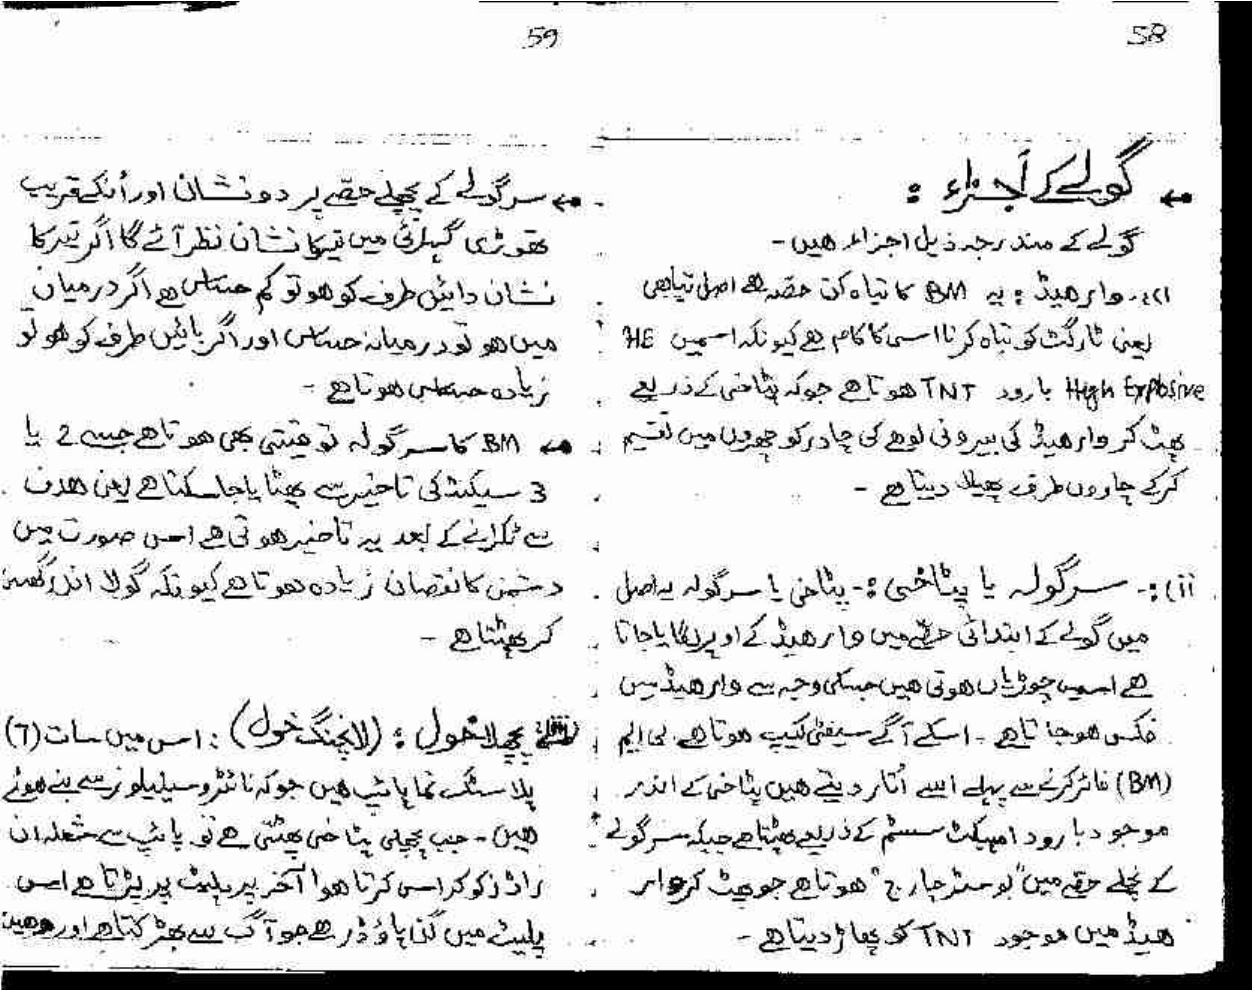 58
گولے کے اجزاء :
گولے کے مندرجہ ذیل اجزاء ھیں -
(i):- وارھیڈ : یہ BM کا تباہ کن حصہ ھے اصل تباھی
یعنی ٹارگٹ کو تباہ کرنا اسی کا کام ھے کیونکہ اسمیں HE
High Explosive بارود TNT ھوتا ھے جوکہ پٹاخی کے ذریعے
پھٹ کر وارھیڈ کی بیرونی لوھے کی چادر کو چھروں میں تقسیم
کرکے چاروں طرف پھیلا دیتا ھے -
(ii):- سرگولہ یا پٹاخی :- پٹاخی یا سرگولہ یہ اصل
میں گولے کے ابتدائی حصے میں وارھیڈ کے اوپر لگایا جاتا
ھے اسمیں چوڑیاں ھوتی ھیں جسکی وجہ سے وارھیڈ میں
فکس ھوجاتا ھے - اسکے آگے سیفٹی کیپ ھوتا ھے بی ایم
(BM) فائر کرنے سے پہلے اسے اُتار دیتے ھیں پٹاخی کے اندر
موجود بارود امپکٹ سسٹم کے ذریعے پھٹتا ھے جبکہ سرگولے
کے پچلے حصے میں "بوسٹر چارج" ھوتا ھے جو پھٹ کر وار
ھیڈ میں موجود TNT کو پھاڑ دیتا ھے -
59
سرگولے کے پچھلے حصے پر دو نشان اور اُنکے قریب
تھوڑی گہرائی میں تیر کا نشان نظر آئے گا اگر تیر کا
نشان دائیں طرف کو ھو تو کم حساس ھے اگر درمیان
میں ھو تو درمیانہ حساس اور اگر بائیں طرف کو ھو تو
زیادہ حساس ھوتا ھے -
BM کا سرگولہ توقیتی بھی ھوتا ھے جسے 2 یا
3 سیکنڈ کی تاخیر سے پھٹایا جاسکتا ھے یعنی ھدف
سے ٹکرانے کے بعد یہ تاخیر ھوتی ھے اس صورت میں
دشمن کا نقصان زیادہ ھوتا ھے کیونکہ گولا اندر گھس
کر پھٹتا ھے -
پچھلا خول : (لانچنگ خول) : اس میں سات (7)
پلاسٹک نما پائپ ھیں جوکہ نائٹروسیلیلوز سے بنے ھوئے
ھیں - جب پچھلی پٹاخی پھٹتی ھے تو پائپ سے شعلہ ان
راڈز کو کراس کرتا ھوا آخر پر پلیٹ پر پڑتا ھے اس
پلیٹ میں گن پاؤڈر ھے جو آگ سے بھڑکتا ھے اور وھیں